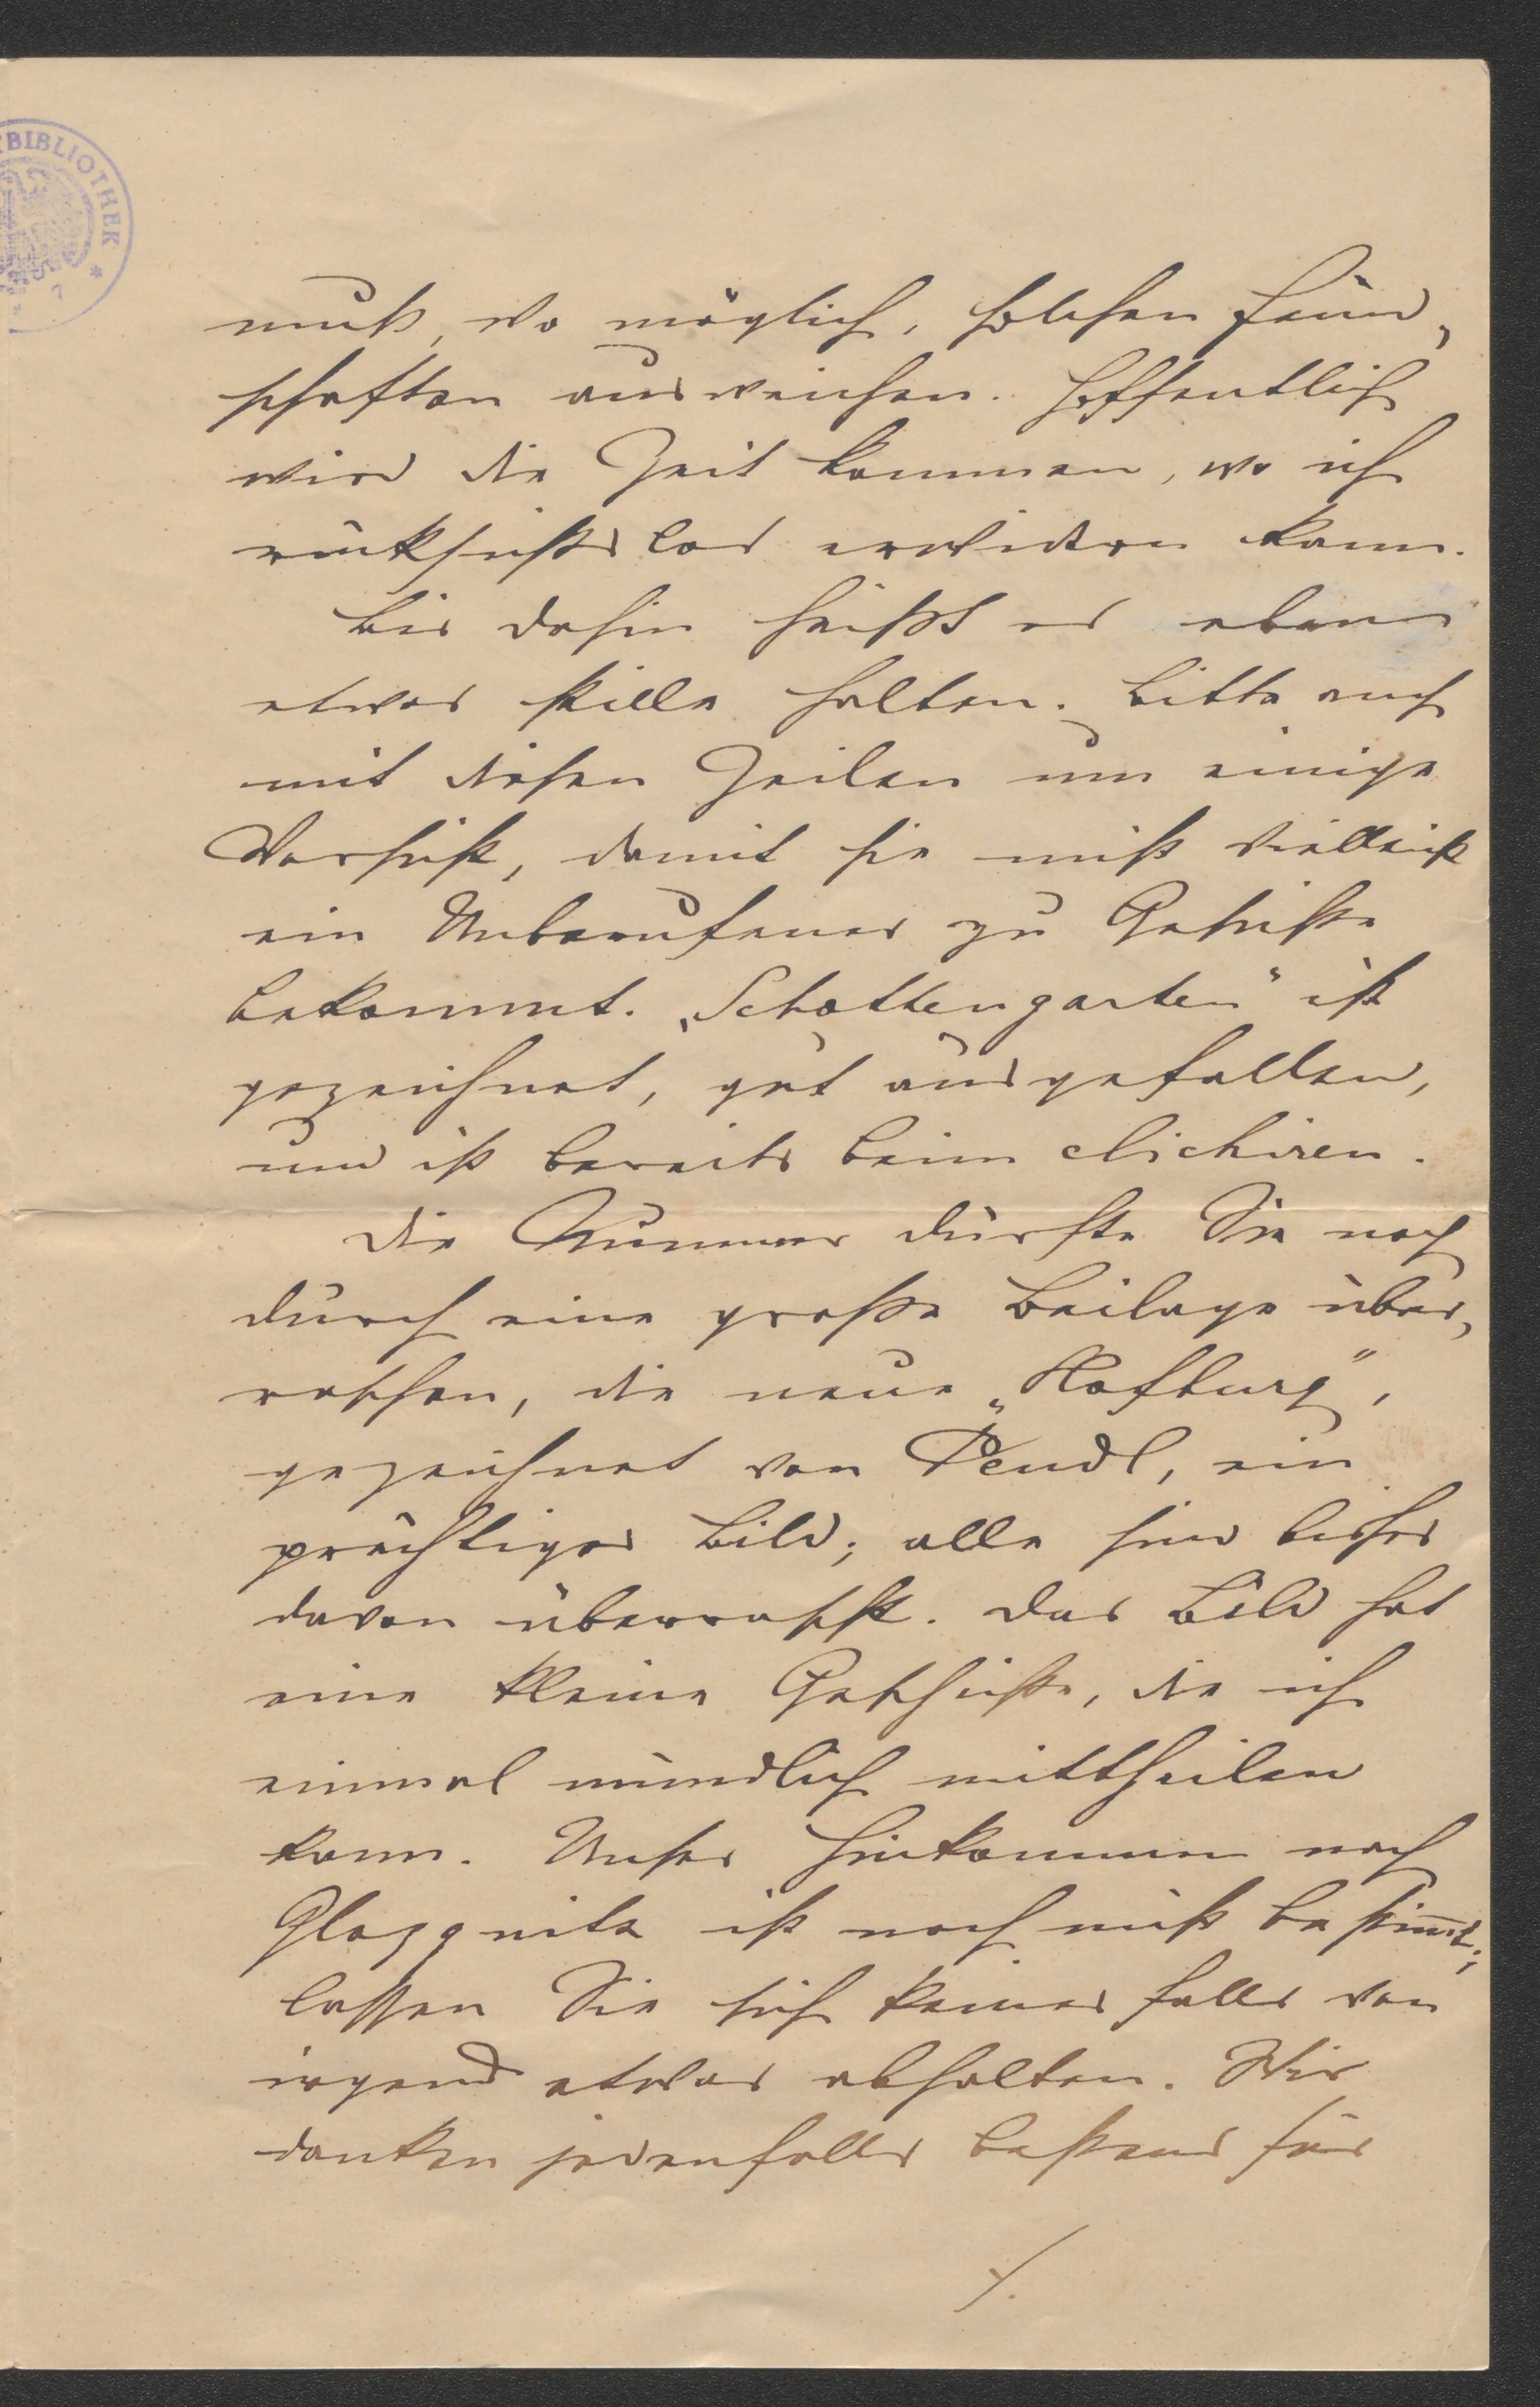 BIBLIOTHEK *
muß, wo möglich, solchen Feind-
schaften ausweichen. Hoffentlich
wird die Zeit kommen, wo ich
rücksichtslos erwidern kann.
Bis dahin heißt es eben
etwas stille halten. Bitte auch
mit diesen Zeilen um einige
Vorsicht, damit sie nicht vielleicht
ein Unberufener zu Gesichte
bekommt. „Schottengarten" ist
gezeichnet, gut ausgefallen,
und ist bereits beim clichiren.
Die Nummer dürfte Sie noch
durch eine große Beilage über-
raschen, die neue „Hofburg",
gezeichnet von Pendl, ein
prächtiges Bild; alle sind bisher
davon überrascht. Das Bild hat
eine kleine Geschichte, die ich
einmal mündlich mittheilen
kann. Unser Hinkommen nach
Gloggnitz ist noch nicht bestim̅t;
lassen Sie sich keines falls von
irgend etwas abhalten. Wir
danken jedenfalls bestens für
./.